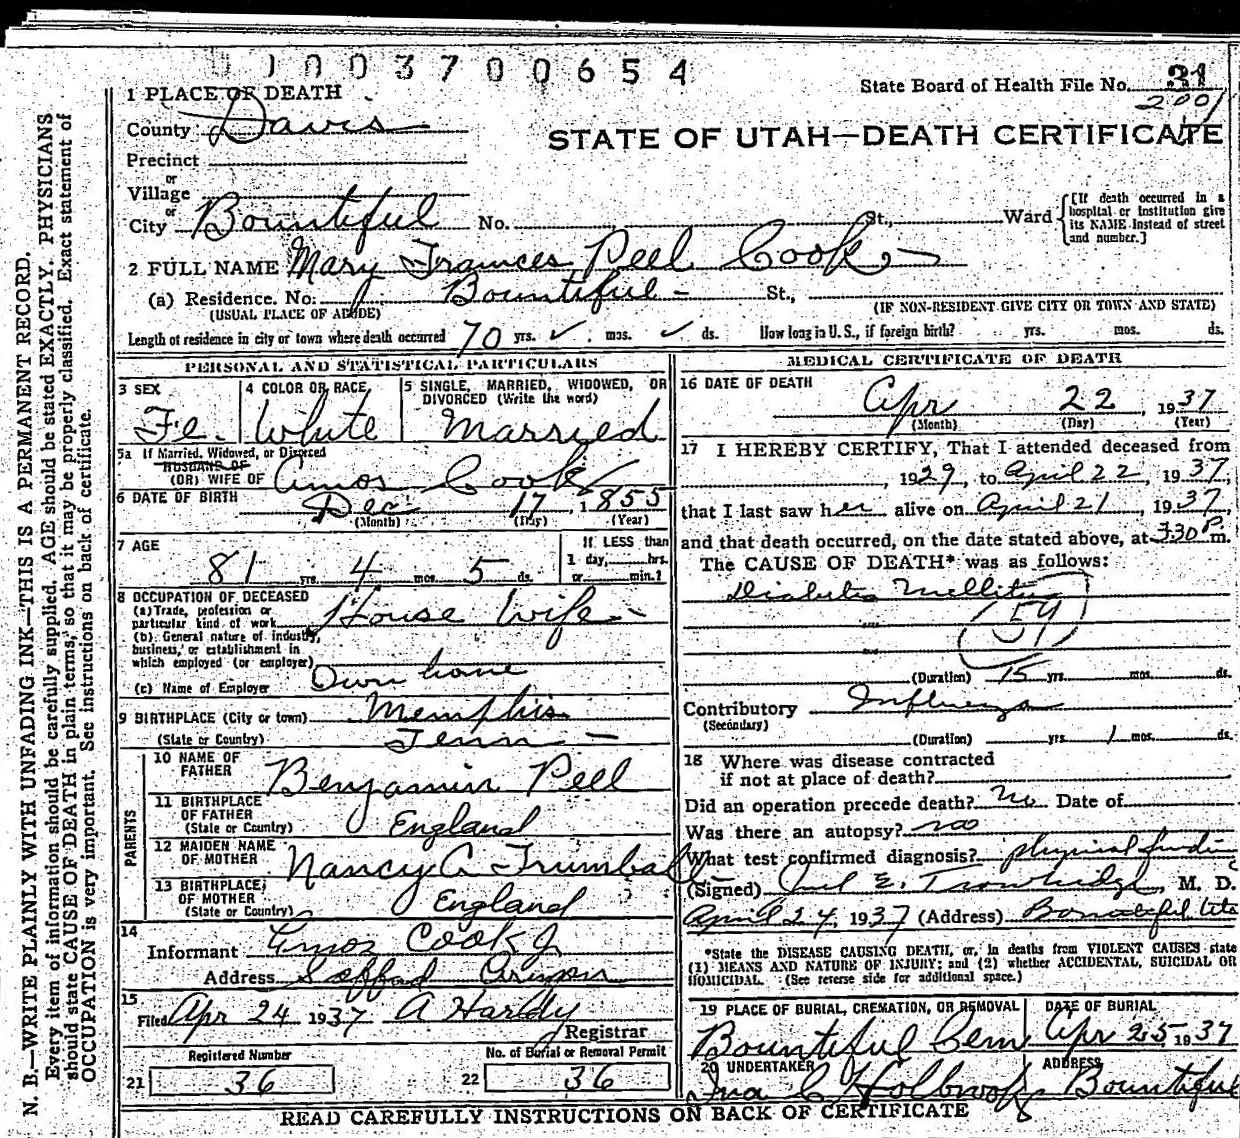 1003700654
State Board of Health File No. 31
2001
1 PLACE OF DEATH
County Davis
STATE OF UTAH—DEATH CERTIFICATE
Precinct
or
Village
or
City Bountiful No. St., Ward {[If death occurred in a hospital or institution give its NAME instead of street and number.]
2 FULL NAME Mary Frances Peel Cook
(a) Residence. No. Bountiful St.,
(USUAL PLACE OF ABODE) (IF NON-RESIDENT GIVE CITY OR TOWN AND STATE)
Length of residence in city or town where death occurred 70 yrs. ✓ mos. ✓ ds. How long in U. S., if foreign birth? yrs. mos. ds.
PERSONAL AND STATISTICAL PARTICULARS
3 SEX 4 COLOR OR RACE 5 SINGLE, MARRIED, WIDOWED, OR DIVORCED (Write the word)
Fe. White Married
5a If Married, Widowed, or Divorced
HUSBAND OF
(OR) WIFE OF Amos Cook
6 DATE OF BIRTH Dec 17, 1855
(Month) (Day) (Year)
7 AGE If LESS than
1 day, hrs.
81 yrs. 4 mos. 5 ds. or min.?
8 OCCUPATION OF DECEASED
(a) Trade, profession or
particular kind of work House Wife
(b) General nature of industry,
business, or establishment in
which employed (or employer) Own home
(c) Name of Employer
9 BIRTHPLACE (City or town) Memphis
(State or Country) Tenn
PARENTS
10 NAME OF
FATHER Benjamin Peel
11 BIRTHPLACE
OF FATHER
(State or Country) England
12 MAIDEN NAME
OF MOTHER Nancy A Trumball
13 BIRTHPLACE
OF MOTHER
(State or Country) England
14
Informant Amos Cook Jr
Address Safford Arizona
15
Filed Apr 24 1937 A Hardy
Registrar
Registered Number No. of Burial or Removal Permit
21 36 22 36
MEDICAL CERTIFICATE OF DEATH
16 DATE OF DEATH
Apr 22, 1937
(Month) (Day) (Year)
17 I HEREBY CERTIFY, That I attended deceased from
, 1929, to April 22, 1937,
that I last saw her alive on April 21, 1937,
and that death occurred, on the date stated above, at 7:30 P. m.
The CAUSE OF DEATH* was as follows:
Diabetes Mellitus
59
(Duration) 15 yrs. mos. ds.
Contributory Influenza
(Secondary)
(Duration) yrs. 1 mos. ds.
18 Where was disease contracted
if not at place of death?
Did an operation precede death? no Date of
Was there an autopsy? no
What test confirmed diagnosis? physical findin
(Signed) E. Trowbridge, M. D.
April 24, 1937 (Address) Bountiful Utah
*State the DISEASE CAUSING DEATH, or, in deaths from VIOLENT CAUSES state
(1) MEANS AND NATURE OF INJURY; and (2) whether ACCIDENTAL, SUICIDAL OR
HOMICIDAL. (See reverse side for additional space.)
19 PLACE OF BURIAL, CREMATION, OR REMOVAL DATE OF BURIAL
Bountiful Cem Apr 25, 1937
20 UNDERTAKER ADDRESS
Bountiful
READ CAREFULLY INSTRUCTIONS ON BACK OF CERTIFICATE
N. B.—WRITE PLAINLY WITH UNFADING INK—THIS IS A PERMANENT RECORD.
Every item of information should be carefully supplied. AGE should be stated EXACTLY. PHYSICIANS
should state CAUSE OF DEATH in plain terms, so that it may be properly classified. Exact statement of
OCCUPATION is very important. See instructions on back of certificate.